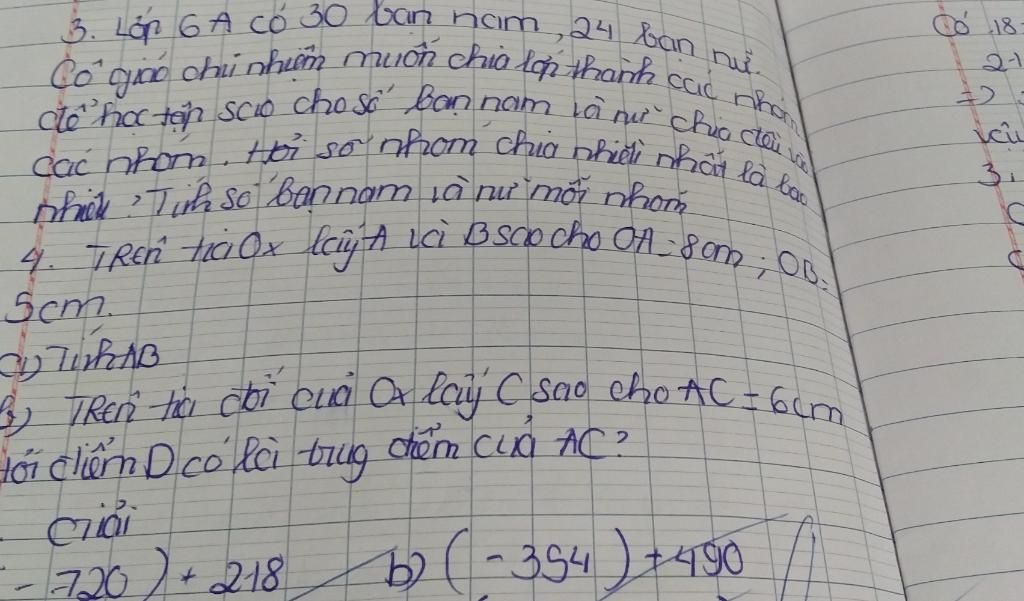 3. Lớp 6A có 30 bạn nam, 24 bạn nữ.
Cô giáo chủ nhiệm muốn chia lớp thành các nhóm
để học tập sao cho số bạn nam và nữ chia đều vào
các nhóm. Hỏi số nhóm chia nhiều nhất là bao
nhiêu? Tính số bạn nam và nữ mỗi nhóm
4. Trên tia Ox lấy A và B sao cho OA = 8cm; OB =
5cm.
a) Tính AB
b) Trên tia đối của Ox lấy C sao cho AC = 6cm
Hỏi điểm D có là trung điểm của AC?
Giải
- 720) + 218 b) (-354) + 490
Có 18
2-1
=>
3.